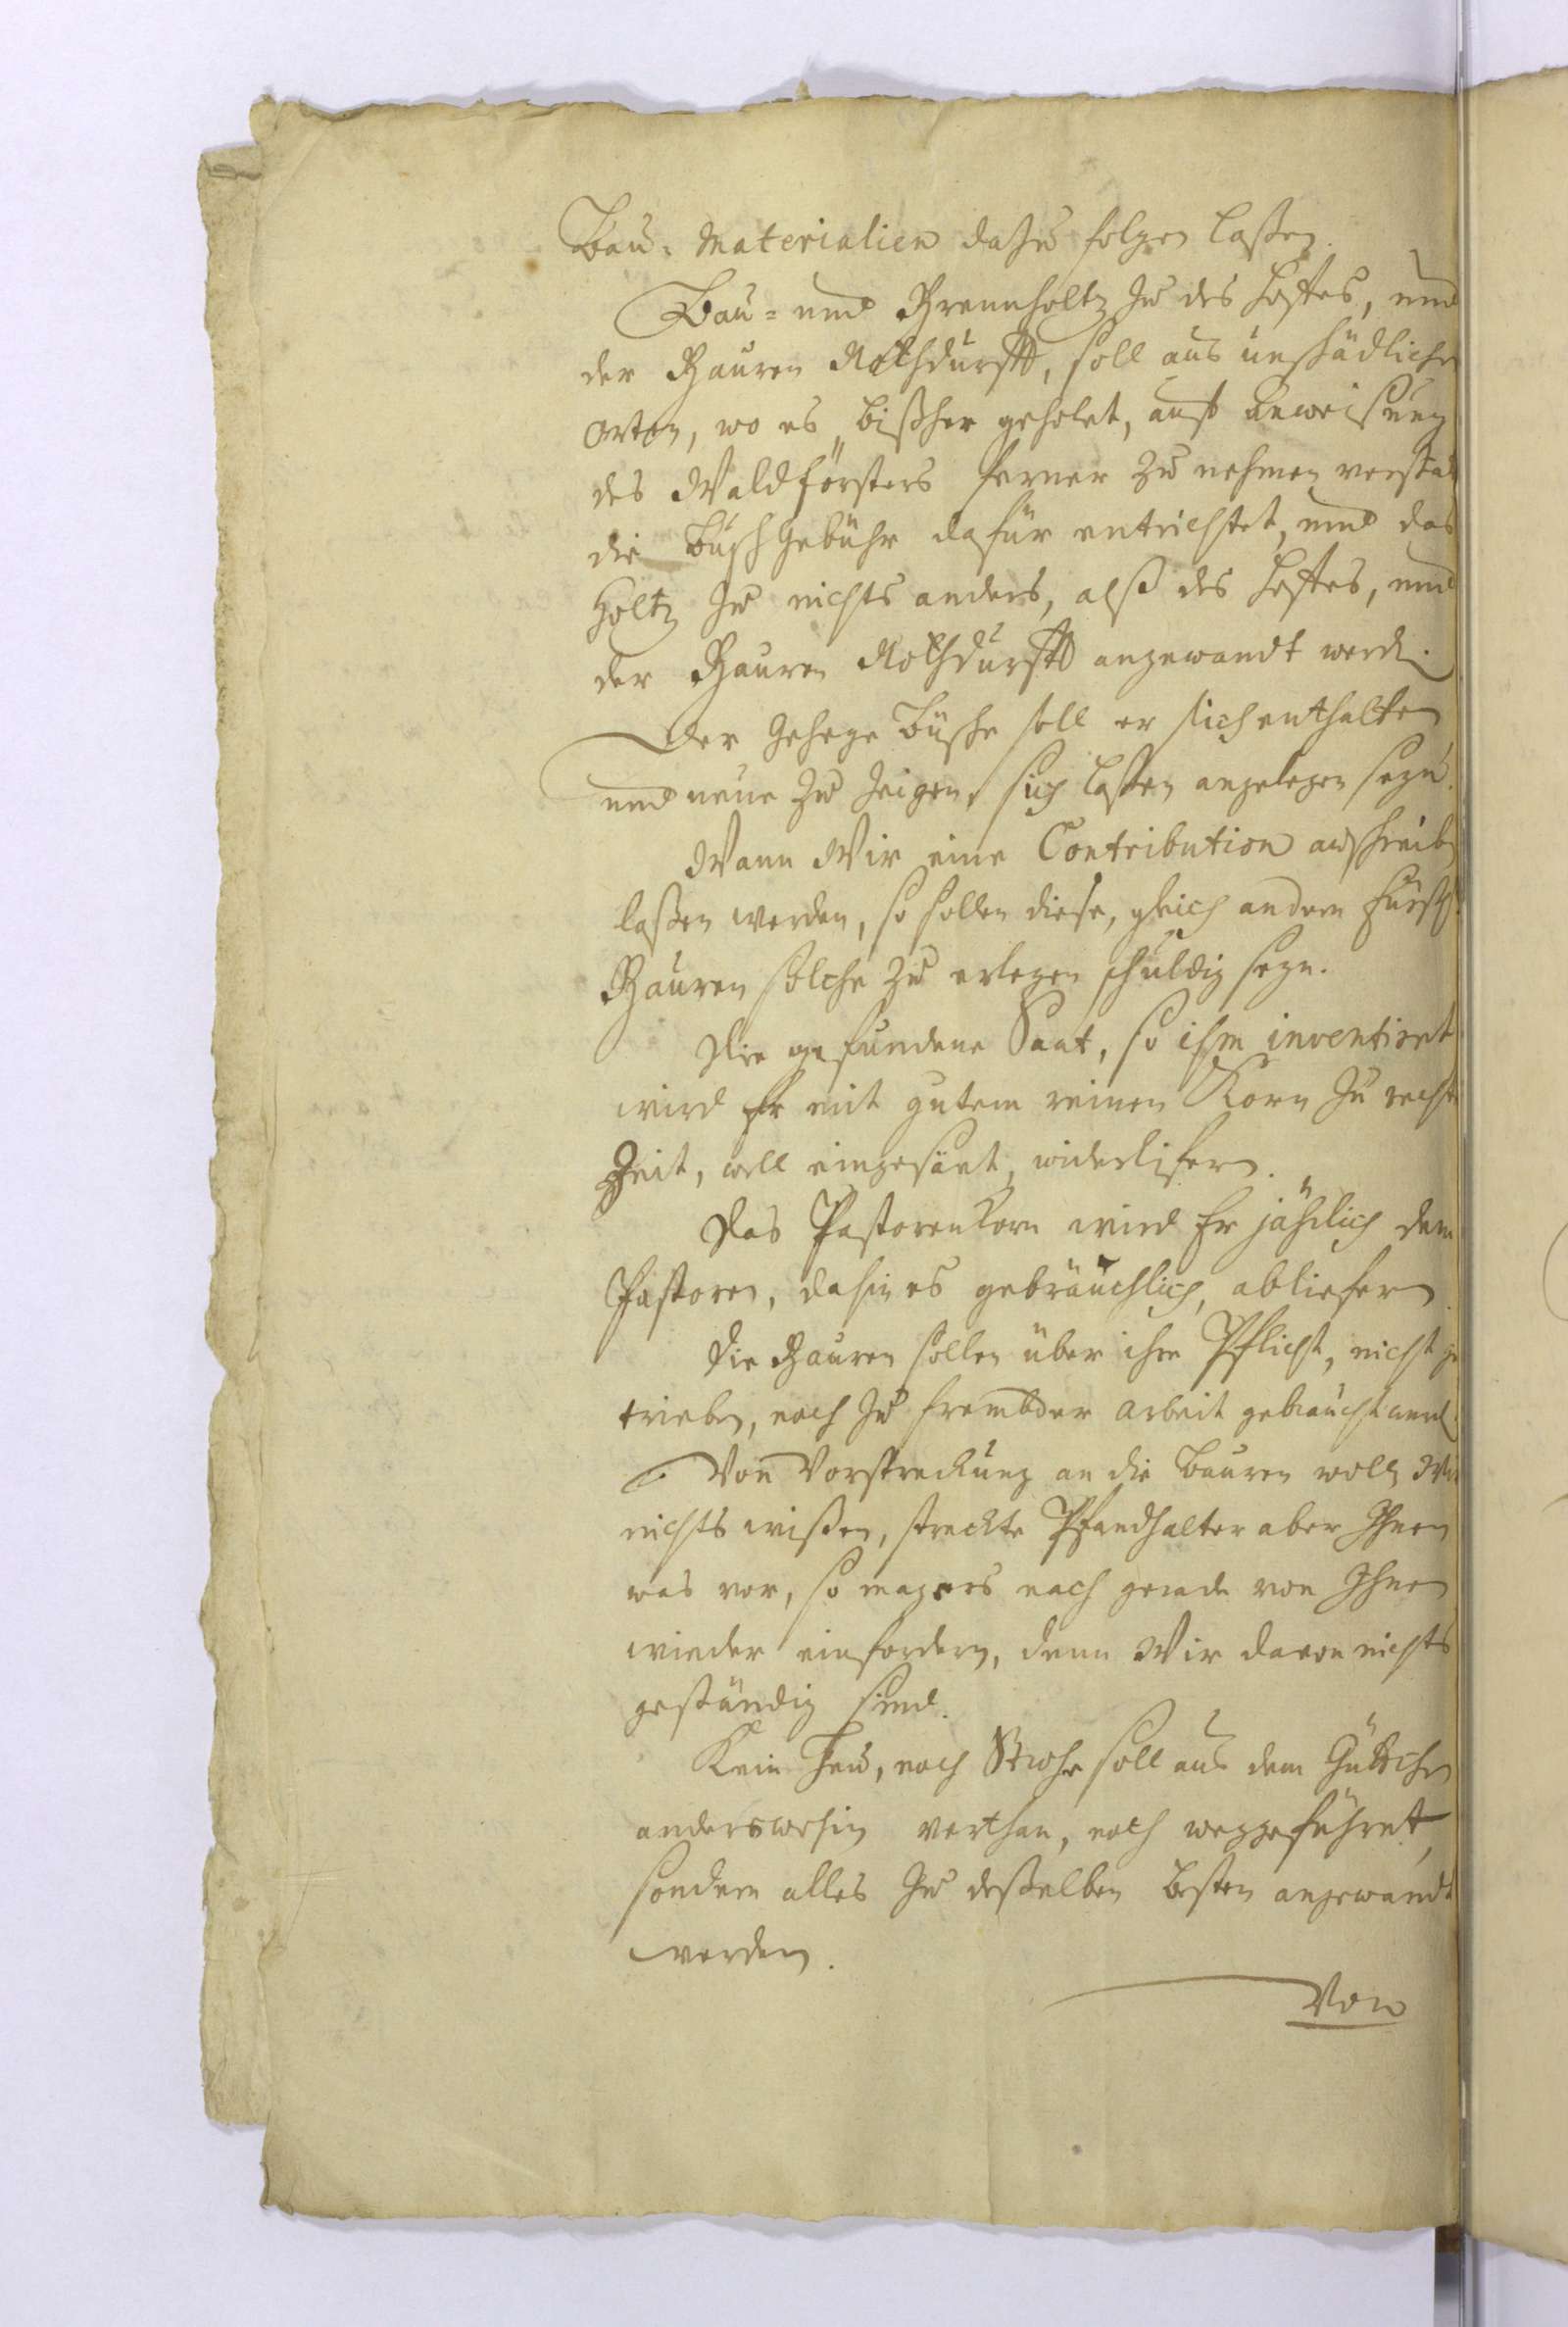 Bau-Materialien dazu folgen laßen.
Bau- und Brennholtz zu des Hoffes, und
der Bauren Nothdurfft, soll aus unschädlichen
Orten, wo es bißher geholet, auff Anweisung
des Waldförsters ferner zu nehmen
die Busch Gebühr dafür entrichtet, und das
Holtz zu nichts anders, alß des Hoffes, und
der Bauren Nothdurfft angewandt werden.
Der Gehege Büsche soll er sich enthalten
und neue zu heigen, sich laßen angelegen seyn.
Wann Wir eine Contribution auschreiben
laßen werden, so sollen diese, gleich andern Fürstl.
Bauren solche zu erlegen schuldig seyn.
Die gefundene Saat, so ihm inventiret
wird Er mit gutem reinen Korn zu rechter
Zeit, woll eingesäet, wiederliefern.
Das Pastorenkorn wird Er jährlich dem
Pastoren, dahin es gebräuchlich, abliefern.
Die Bauren sollen über ihre Pflicht, nicht ge
trieben, noch zu frembder Arbeit gebraucht werden.
Von Vorstreckung an die Bauren wollen Wir
nichts wißen, streckte Pfandhalter aber Ihnen
was vor, so mag ers nach gerade von Ihnen
wieder einfordern, denn Wir davon nichts
geständig sind.
Kein Heu, noch Stroh soll aus dem Gütchen
anderswohin verthan, noch weggeführet,
sondern alles zu deßelben Besten angewandt
werden.
Von